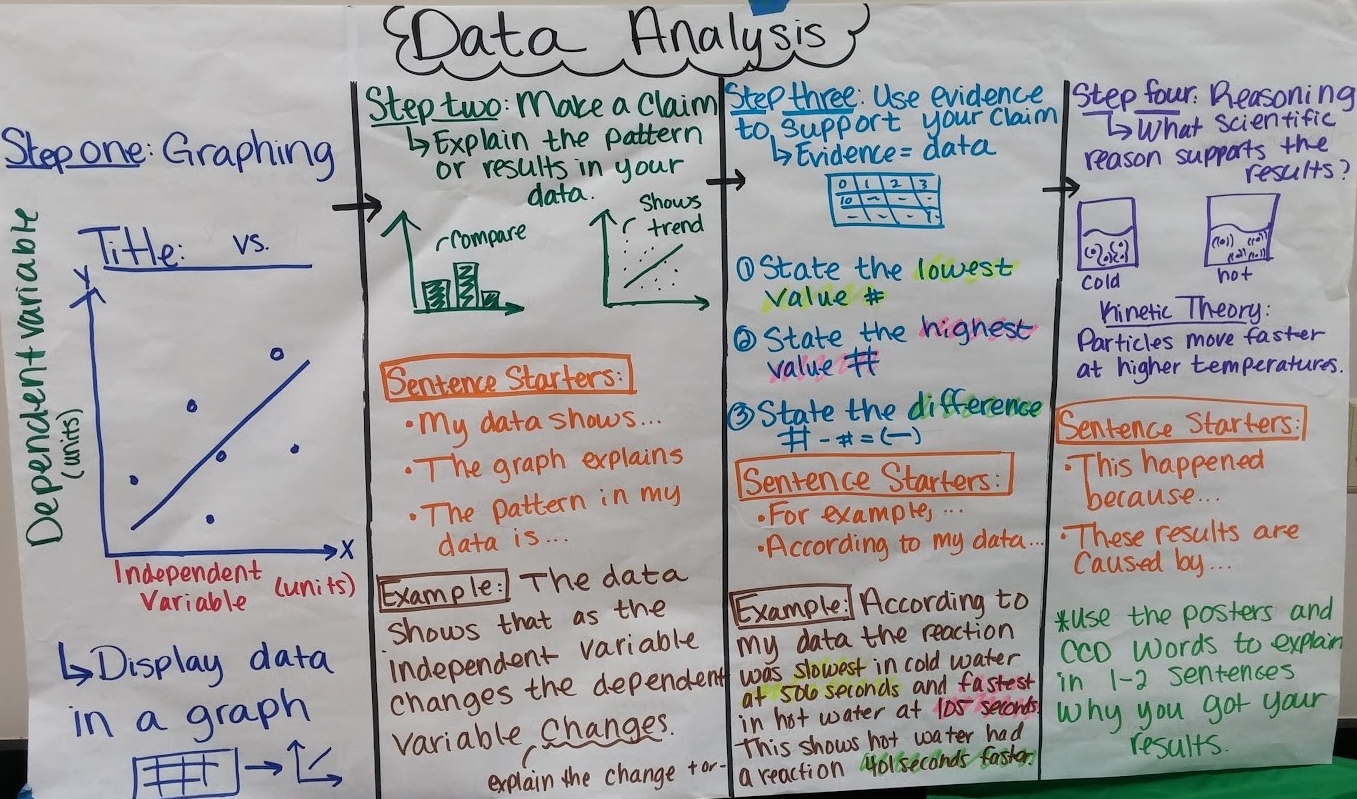 Data Analysis
Step one: Graphing
Title: vs.
Y
Dependent variable
(units)
X
Independent
Variable
(units)
↳Display data
in a graph
Step two: Make a Claim
↳Explain the pattern
or results in your
data.
Compare
Shows
trend
Sentence Starters:
•My data shows...
•The graph explains
•The pattern in my
data is...
Example: The data
shows that as the
independent variable
changes the dependent
variable changes.
explain the change + or -
Step three: Use evidence
to support your claim
↳Evidence = data
0 1 2 3
10 - - -
- - -
① State the lowest
value #
② State the highest
value #
③ State the difference
# - # = (—)
Sentence Starters:
•For example, ...
•According to my data...
Example: According to
my data the reaction
was slowest in cold water
at 506 seconds and fastest
in hot water at 105 seconds.
This shows hot water had
a reaction 401 seconds faster.
Step four: Reasoning
↳What scientific
reason supports the
results?
cold
hot
Kinetic Theory:
Particles move faster
at higher temperatures.
Sentence Starters:
•This happened
because...
•These results are
caused by...
*Use the posters and
CCD words to explain
in 1-2 sentences
why you got your
results.